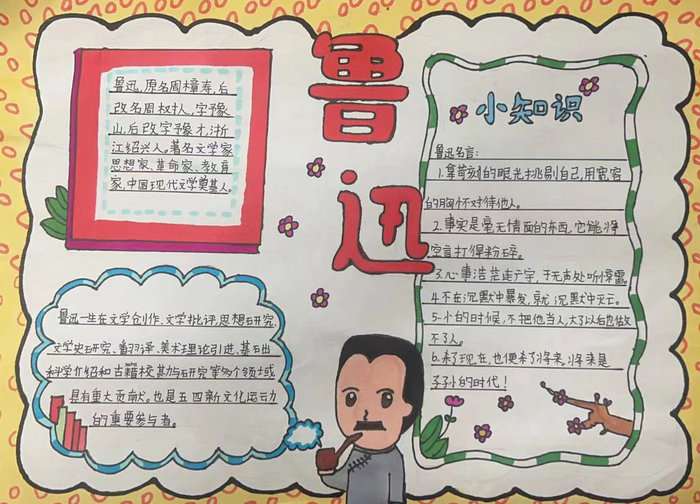 鲁迅
鲁迅,原名周樟寿,后
改名周树人,字豫
山,后改字豫才,浙
江绍兴人。著名文学家
思想家、革命家、教育
家,中国现代文学奠基人。
鲁迅一生在文学创作、文学批评、思想研究、
文学史研究、翻译、美术理论引进、基础
科学介绍和古籍校勘与研究等多个领域
具有重大贡献。也是五四新文化运动
的重要参与者。
小知识
鲁迅名言:
1.拿苛刻的眼光挑剔自己,用宽容
的胸怀对待他人。
2.事实是毫无情面的东西,它能将
空言打得粉碎。
3.心事浩茫连广宇,于无声处听惊雷。
4.不在沉默中爆发,就沉默中灭亡。
5.小的时候,不把他当人,大了以后也做
不了人。
6.杀了现在,也便杀了将来,将来是
子孙的时代!